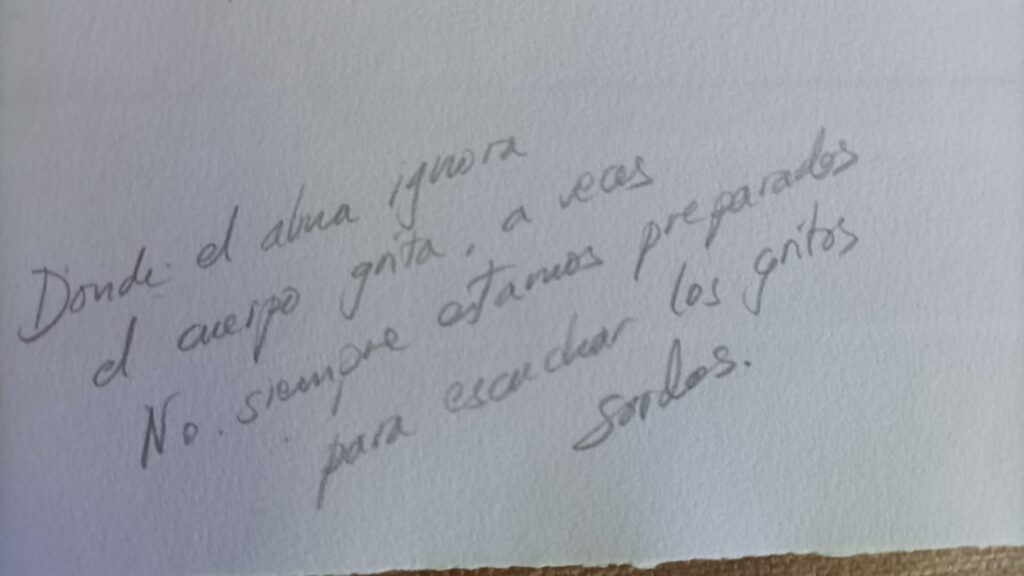 Donde el alma ignora
el cuerpo grita, a veces
No. siempre estamos preparados
para escuchar los gritos
sordos.